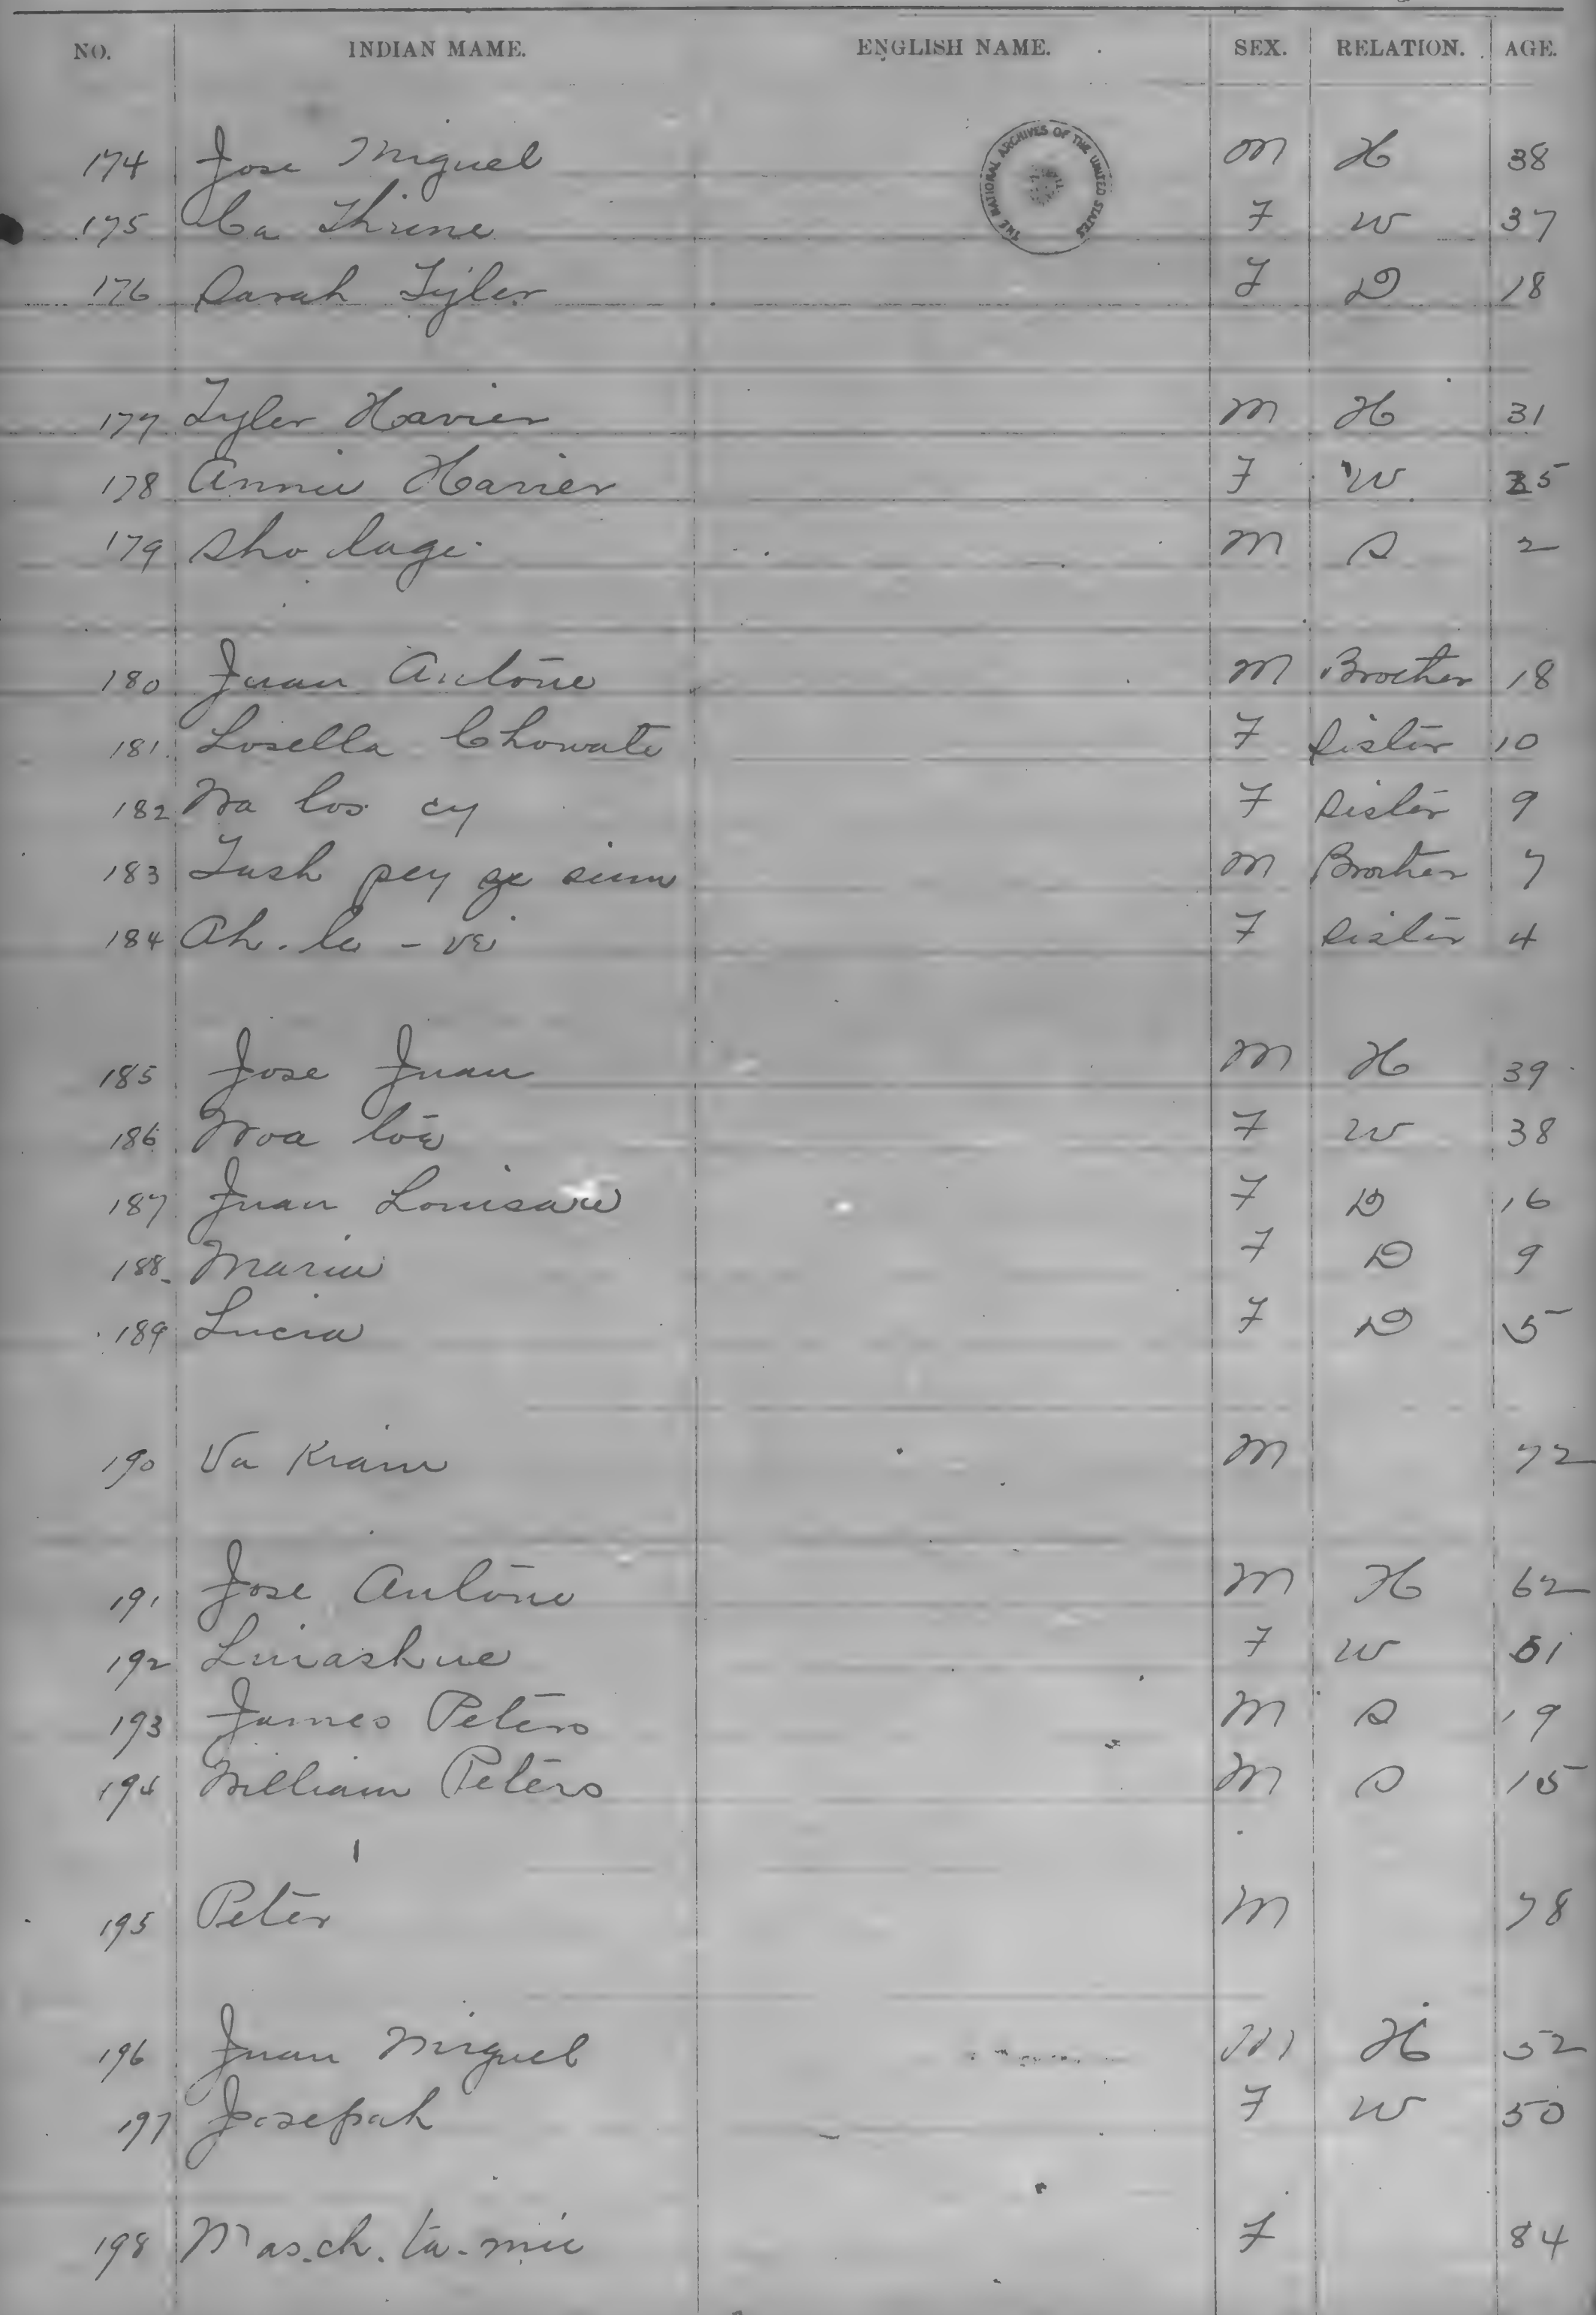 NO. INDIAN MAME. ENGLISH NAME. SEX. RELATION. AGE.
THE NATIONAL ARCHIVES OF THE UNITED STATES
174 Jose Miguel M H 38
175 Ca Thrine F W 37
176 Sarah Tyler F D 18
177 Tyler Havier M H 31
178 Annie Havier F W 35
179 Sho luge M S 2
180 Juan Antone M Brother 18
181 Losella Chowate F Sister 10
182 F Sister 9
183 Tush pey ge M Brother 7
184 Ah - le - ve F Sister 4
185 Jose Juan M H 39
186 F W 38
187 Juan F D 16
188 Maria F D 9
189 Lucia F D 5
190 Va Kiam M 72
191 Jose Antone M H 62
192 F W 51
193 James Peters M S 19
194 William Peters M S 15
195 Peter M 78
196 Juan Miguel M H 52
197 Josepah F W 50
198 Mas.ch.ta-mie F 84